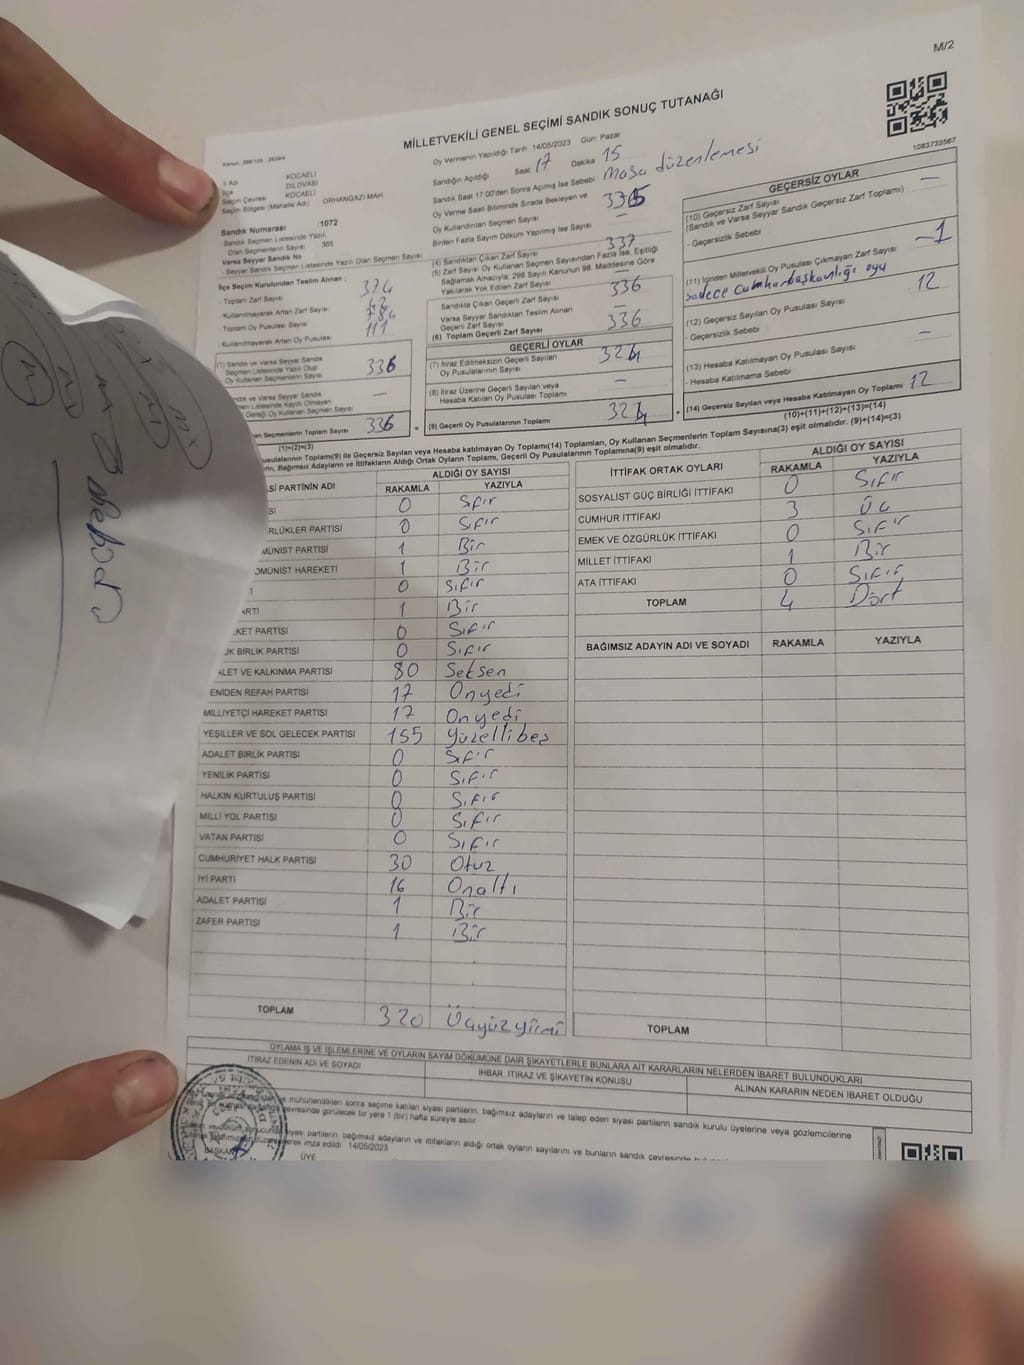 M/2
MİLLETVEKİLİ GENEL SEÇİMİ SANDIK SONUÇ TUTANAĞI
1083733567
İl Adı KOCAELİ
İlçe DİLOVASI
Seçim Çevresi KOCAELİ
Seçim Bölgesi (Mahalle Adı) ORHANGAZİ MAH
Sandık Numarası :1072
- Sandık Seçmen Listesinde Yazılı
Olan Seçmenlerin Sayısı 365
Varsa Seyyar Sandık No
- Seyyar Sandık Seçmen Listesinde Yazılı Olan Seçmen Sayısı
Oy Vermenin Yapıldığı Tarih 14/05/2023 Gün: Pazar
Sandığın Açıldığı Saat 17 Dakika 15
Sandık Saat 17:00'den Sonra Açılmış İse Sebebi Masa düzenlemesi
Oy Verme Saati Bitiminde Sırada Bekleyen ve
Oy Kullandırılan Seçmen Sayısı
Birden Fazla Sayım Döküm Yapılmış İse Sayısı —
İlçe Seçim Kurulundan Teslim Alınan ;
- Toplam Zarf Sayısı 374
- Kullanılmayarak Artan Zarf Sayısı
- Toplam Oy Pusulası Sayısı
- Kullanılmayarak Artan Oy Pusulası 111
(4) Sandıktan Çıkan Zarf Sayısı 337
(5) Zarf Sayısı Oy Kullanan Seçmen Sayısından Fazla İse, Eşitliği
Sağlamak Amacıyla, 298 Sayılı Kanunun 98. Maddesine Göre
Yakılarak Yok Edilen Zarf Sayısı —
Sandıkta Çıkan Geçerli Zarf Sayısı 336
Varsa Seyyar Sandıktan Teslim Alınan
Geçerli Zarf Sayısı —
(6) Toplam Geçerli Zarf Sayısı 336
GEÇERLİ OYLAR
(7) İtiraz Edilmeksizin Geçerli Sayılan
Oy Pusulalarının Sayısı 324
(8) İtiraz Üzerine Geçerli Sayılan veya
Hesaba Katılan Oy Pusulası Toplamı —
(9) Geçerli Oy Pusulalarının Toplamı 324
GEÇERSİZ OYLAR
(10) Geçersiz Zarf Sayısı —
(Sandık ve Varsa Seyyar Sandık Geçersiz Zarf Toplamı)
- Geçersizlik Sebebi
(11) İçinden Milletvekili Oy Pusulası Çıkmayan Zarf Sayısı —1
sadece cumhurbaşkanlığı oyu
(12) Geçersiz Sayılan Oy Pusulası Sayısı 12
- Geçersizlik Sebebi:
(13) Hesaba Katılmayan Oy Pusulası Sayısı —
- Hesaba Katılmama Sebebi: —
(14) Geçersiz Sayılan veya Hesaba Katılmayan Oy Toplamı 12
(10)+(11)+(12)+(13)=(14)
(1) Sandık ve Varsa Seyyar Sandık
Seçmen Listesinde Yazılı Olup
Oy Kullanan Seçmenlerin Sayısı 336
ndık ve Varsa Seyyar Sandık
Listesinde Kayıtlı Olmayan
Gereği Oy Kullanan Seçmen Sayısı —
an Seçmenlerin Toplam Sayısı 336
(1)+(2)=(3)
usulalarının Toplamı(9) ile Geçersiz Sayılan veya Hesaba Katılmayan Oy Toplamı(14) Toplamları, Oy Kullanan Seçmenlerin Toplam Sayısına(3) eşit olmalıdır. (9)+(14)=(3)
rin, Bağımsız Adayların ve İttifakların Aldığı Ortak Oyların Toplamı, Geçerli Oy Pusulalarının Toplamına(9) eşit olmalıdır.
Sİ PARTİNİN ADI ALDIĞI OY SAYISI
RAKAMLA YAZIYLA
Sİ 0 Sıfır
RLÜKLER PARTİSİ 0 Sıfır
MÜNİST PARTİSİ 1 Bir
OMÜNİST HAREKETİ 1 Bir
İ 0 Sıfır
ARTİ 1 Bir
KET PARTİSİ 0 Sıfır
ÜK BİRLİK PARTİSİ 0 Sıfır
ALET VE KALKINMA PARTİSİ 80 Seksen
ENİDEN REFAH PARTİSİ 17 Onyedi
MİLLİYETÇİ HAREKET PARTİSİ 17 Onyedi
YEŞİLLER VE SOL GELECEK PARTİSİ 155 Yüzellibeş
ADALET BİRLİK PARTİSİ 0 Sıfır
YENİLİK PARTİSİ 0 Sıfır
HALKIN KURTULUŞ PARTİSİ 0 Sıfır
MİLLİ YOL PARTİSİ 0 Sıfır
VATAN PARTİSİ 0 Sıfır
CUMHURİYET HALK PARTİSİ 30 Otuz
İYİ PARTİ 16 Onaltı
ADALET PARTİSİ 1 Bir
ZAFER PARTİSİ 1 Bir
TOPLAM 320 Üçyüzyirmi
İTTİFAK ORTAK OYLARI ALDIĞI OY SAYISI
RAKAMLA YAZIYLA
SOSYALİST GÜÇ BİRLİĞİ İTTİFAKI 0 Sıfır
CUMHUR İTTİFAKI 3 Üç
EMEK VE ÖZGÜRLÜK İTTİFAKI 0 Sıfır
MİLLET İTTİFAKI 1 Bir
ATA İTTİFAKI 0 Sıfır
TOPLAM 4 Dört
BAĞIMSIZ ADAYIN ADI VE SOYADI RAKAMLA YAZIYLA
TOPLAM
OYLAMA İŞ VE İŞLEMLERİNE VE OYLARIN SAYIM DÖKÜMÜNE DAİR ŞİKAYETLERLE BUNLARA AİT KARARLARIN NELERDEN İBARET BULUNDUKLARI
İTİRAZ EDENİN ADI VE SOYADI İHBAR, İTİRAZ VE ŞİKAYETİN KONUSU ALINAN KARARIN NEDEN İBARET OLDUĞU
mühürlendikten sonra seçime katılan siyasi partilerin, bağımsız adayların ve talep eden siyasi partilerin sandık kurulu üyelerine veya gözlemcilerine
çevresinde görülecek bir yere 1 (bir) hafta süreyle asılır
siyasi partilerin, bağımsız adayların ve ittifakların aldığı ortak oyların sayılarını ve bunların sandık çevresinde
imza edildi 14/05/2023
BAŞKAN ÜYE